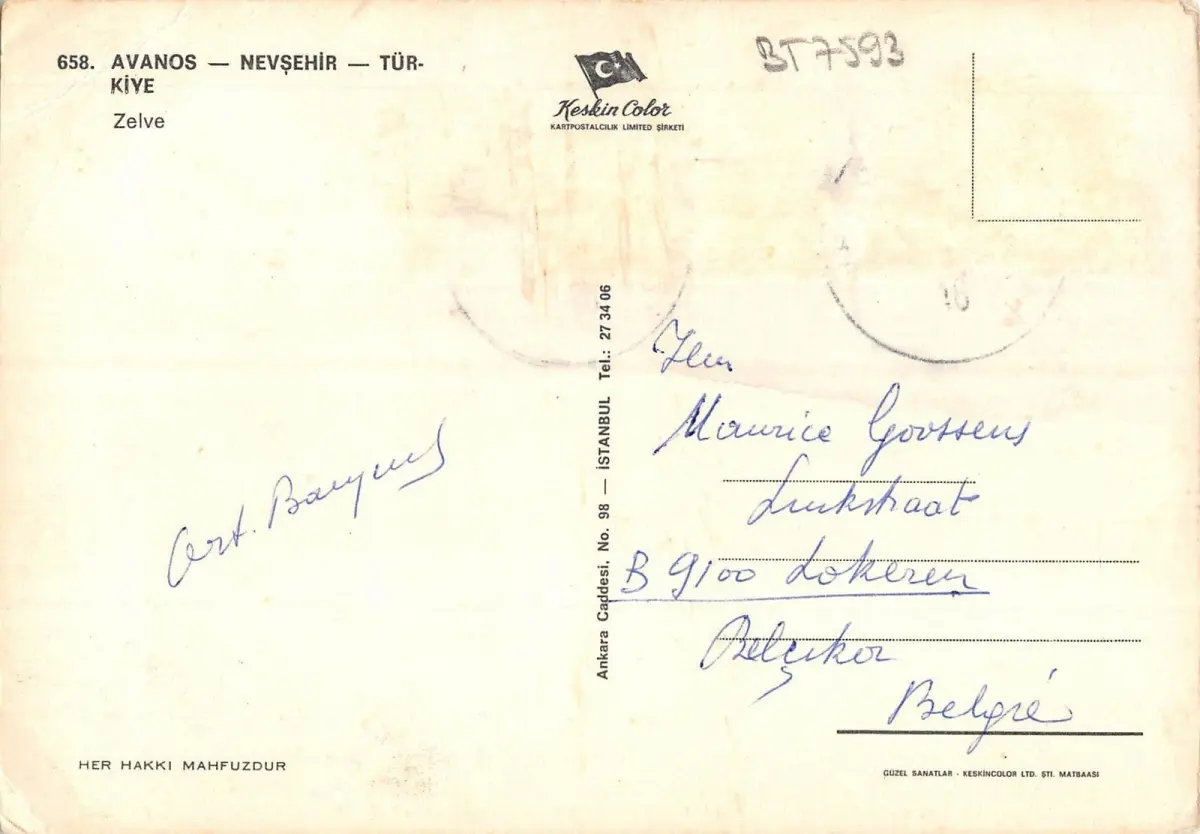 658. AVANOS — NEVŞEHİR — TÜR-
KİYE
Zelve
Keskin Color
KARTPOSTALCILIK LIMITED ŞİRKETİ
BT7593
16
Ankara Caddesi, No. 98 — İSTANBUL Tel.: 27 34 06
Maurice Goossens
B 9100 Lokeren
Belçika
België
HER HAKKI MAHFUZDUR
GÜZEL SANATLAR - KESKİNCOLOR LTD. ŞTİ. MATBAASI